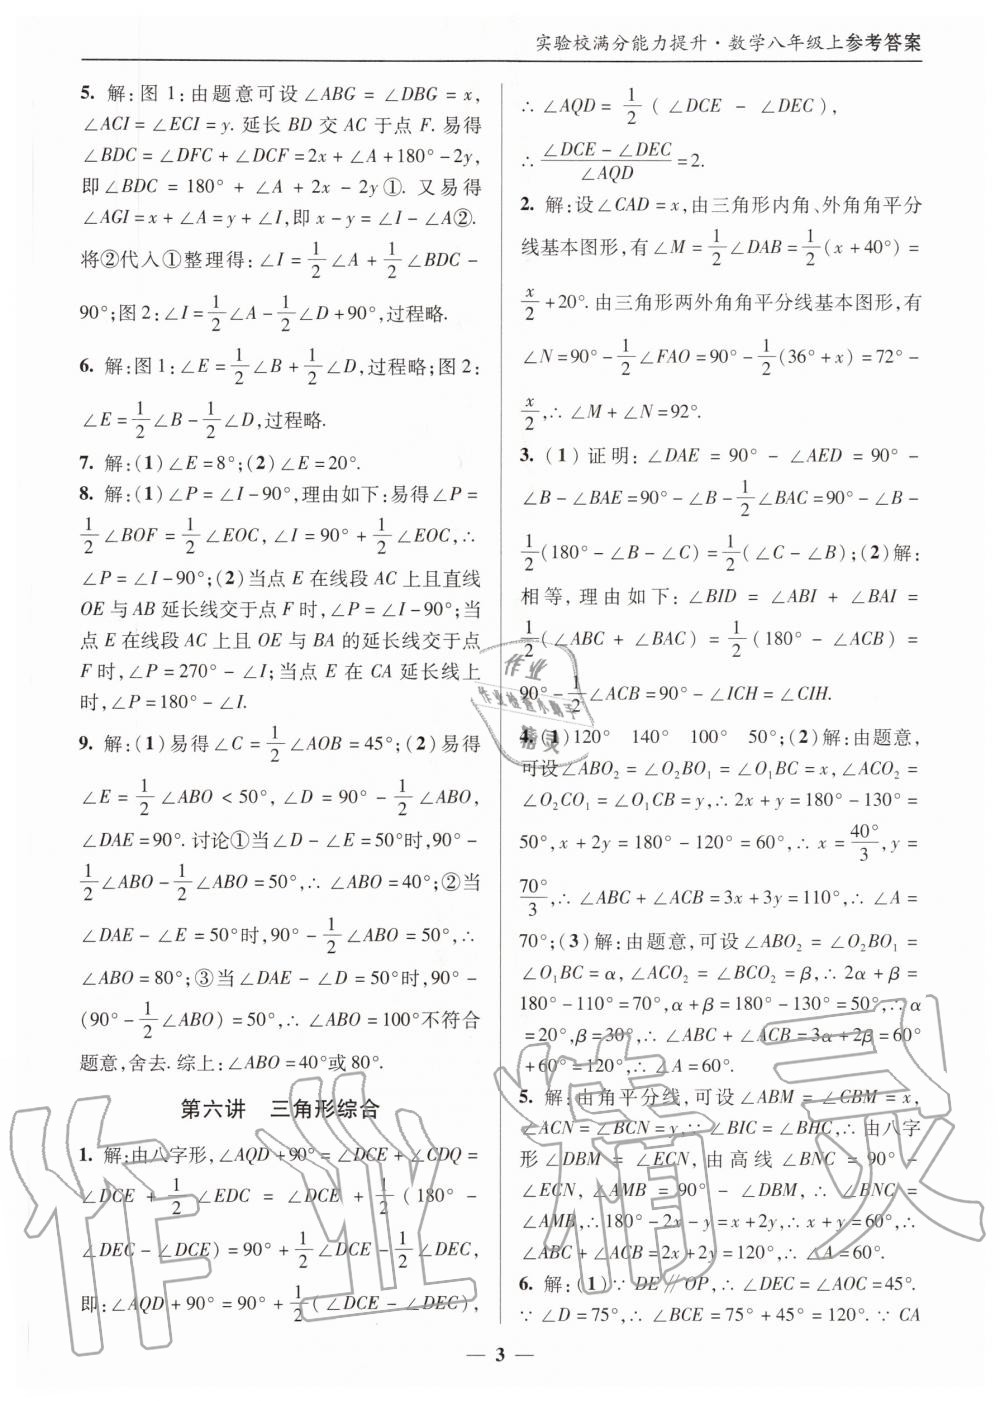 实验校满分能力提升·数学八年级上参考答案
5. 解:图 1:由题意可设∠ABG = ∠DBG = x,
∠ACI=∠ECI=y. 延长 BD 交 AC 于点 F. 易得
∠BDC=∠DFC+∠DCF=2x+∠A+180°-2y,
即∠BDC = 180° + ∠A + 2x - 2y①. 又易得
∠AGI=x+∠A=y+∠I,即 x-y=∠I-∠A②.
将②代入①整理得:∠I=1/2∠A+1/2∠BDC-
90°;图 2:∠I=1/2∠A-1/2∠D+90°,过程略.
6. 解:图 1:∠E=1/2∠B+1/2∠D,过程略;图 2:
∠E=1/2∠B-1/2∠D,过程略.
7. 解:(1)∠E=8°;(2)∠E=20°.
8. 解:(1)∠P=∠I-90°,理由如下:易得∠P=
1/2∠BOF=1/2∠EOC,∠I=90°+1/2∠EOC,∴
∠P=∠I-90°;(2)当点 E 在线段 AC 上且直线
OE 与 AB 延长线交于点 F 时,∠P=∠I-90°;当
点 E 在线段 AC 上且 OE 与 BA 的延长线交于点
F 时,∠P=270°-∠I;当点 E 在 CA 延长线上
时,∠P=180°-∠I.
9. 解:(1)易得∠C=1/2∠AOB=45°;(2)易得
∠E=1/2∠ABO<50°,∠D=90°-1/2∠ABO,
∠DAE=90°. 讨论①当∠D-∠E=50°时,90°-
1/2∠ABO-1/2∠ABO=50°,∴∠ABO=40°;②当
∠DAE-∠E=50°时,90°-1/2∠ABO=50°,∴
∠ABO=80°;③当∠DAE-∠D=50°时,90°-
(90°-1/2∠ABO)=50°,∴∠ABO=100°不符合
题意,舍去. 综上:∠ABO=40°或 80°.
第六讲 三角形综合
1. 解:由八字形,∠AQD+90°=∠DCE+∠CDQ=
∠DCE+1/2∠EDC=∠DCE+1/2(180°-
∠DEC-∠DCE)=90°+1/2∠DCE-1/2∠DEC,
即:∠AQD+90°=90°+1/2(∠DCE-∠DEC),
∴∠AQD=1/2(∠DCE-∠DEC),
∴(∠DCE-∠DEC)/∠AQD=2.
2. 解:设∠CAD=x,由三角形内角、外角角平分
线基本图形,有∠M=1/2∠DAB=1/2(x+40°)=
x/2+20°. 由三角形两外角角平分线基本图形,有
∠N=90°-1/2∠FAO=90°-1/2(36°+x)=72°-
x/2,∴∠M+∠N=92°.
3. (1)证明:∠DAE=90°-∠AED=90°-
∠B-∠BAE=90°-∠B-1/2∠BAC=90°-∠B-
1/2(180°-∠B-∠C)=1/2(∠C-∠B);(2)解:
相等,理由如下:∠BID=∠ABI+∠BAI=
1/2(∠ABC+∠BAC)=1/2(180°-∠ACB)=
90°-1/2∠ACB=90°-∠ICH=∠CIH.
4. (1)120° 140° 100° 50°;(2)解:由题意,
可设∠ABO₂=∠O₂BO₁=∠O₁BC=x,∠ACO₂=
∠O₂CO₁=∠O₁CB=y,∴2x+y=180°-130°=
50°,x+2y=180°-120°=60°,∴x=40°/3,y=
70°/3,∴∠ABC+∠ACB=3x+3y=110°,∴∠A=
70°;(3)解:由题意,可设∠ABO₂=∠O₂BO₁=
∠O₁BC=α,∠ACO₂=∠BCO₂=β,∴2α+β=
180°-110°=70°,α+β=180°-130°=50°,∴α
=20°,β=30°,∴∠ABC+∠ACB=3α+2β=60°
+60°=120°,∴∠A=60°.
5. 解:由角平分线,可设∠ABM=∠CBM=x,
∠ACN=∠BCN=y,∵∠BIC=∠BHC,∴由八字
形∠DBM=∠ECN,由高线∠BNC=90°-
∠ECN,∠AMB=90°-∠DBM,∴∠BNC=
∠AMB,∴180°-2x-y=x+2y,∴x+y=60°,∴
∠ABC+∠ACB=2x+2y=120°,∴∠A=60°.
6. 解:(1)∵DE∥OP,∴∠DEC=∠AOC=45°.
∵∠D=75°,∴∠BCE=75°+45°=120°. ∵CA
— 3 —
作业
作业检查小助手
精灵
作业精灵